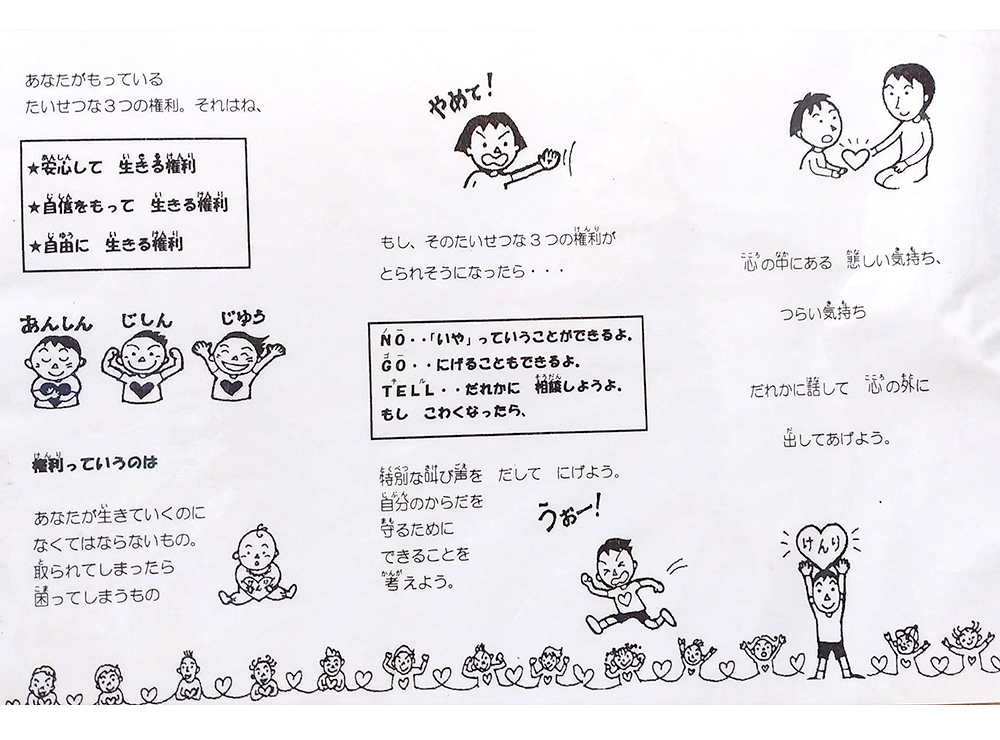 あなたがもっている
たいせつな3つの権利。それはね、
★安心して 生きる権利
★自信をもって 生きる権利
★自由に 生きる権利
あんしん
じしん
じゆう
権利っていうのは
あなたが生きていくのに
なくてはならないもの。
取られてしまったら
困ってしまうもの
やめて!
もし、そのたいせつな3つの権利が
とられそうになったら・・・
NO・・「いや」っていうことができるよ。
GO・・にげることもできるよ。
TELL・・だれかに 相談しようよ。
もし こわくなったら、
特別な叫び声を だして にげよう。
自分のからだを
守るために
できることを
考えよう。
うぉー!
心の中にある 悲しい気持ち、
つらい気持ち
だれかに話して 心の外に
出してあげよう。
けんり